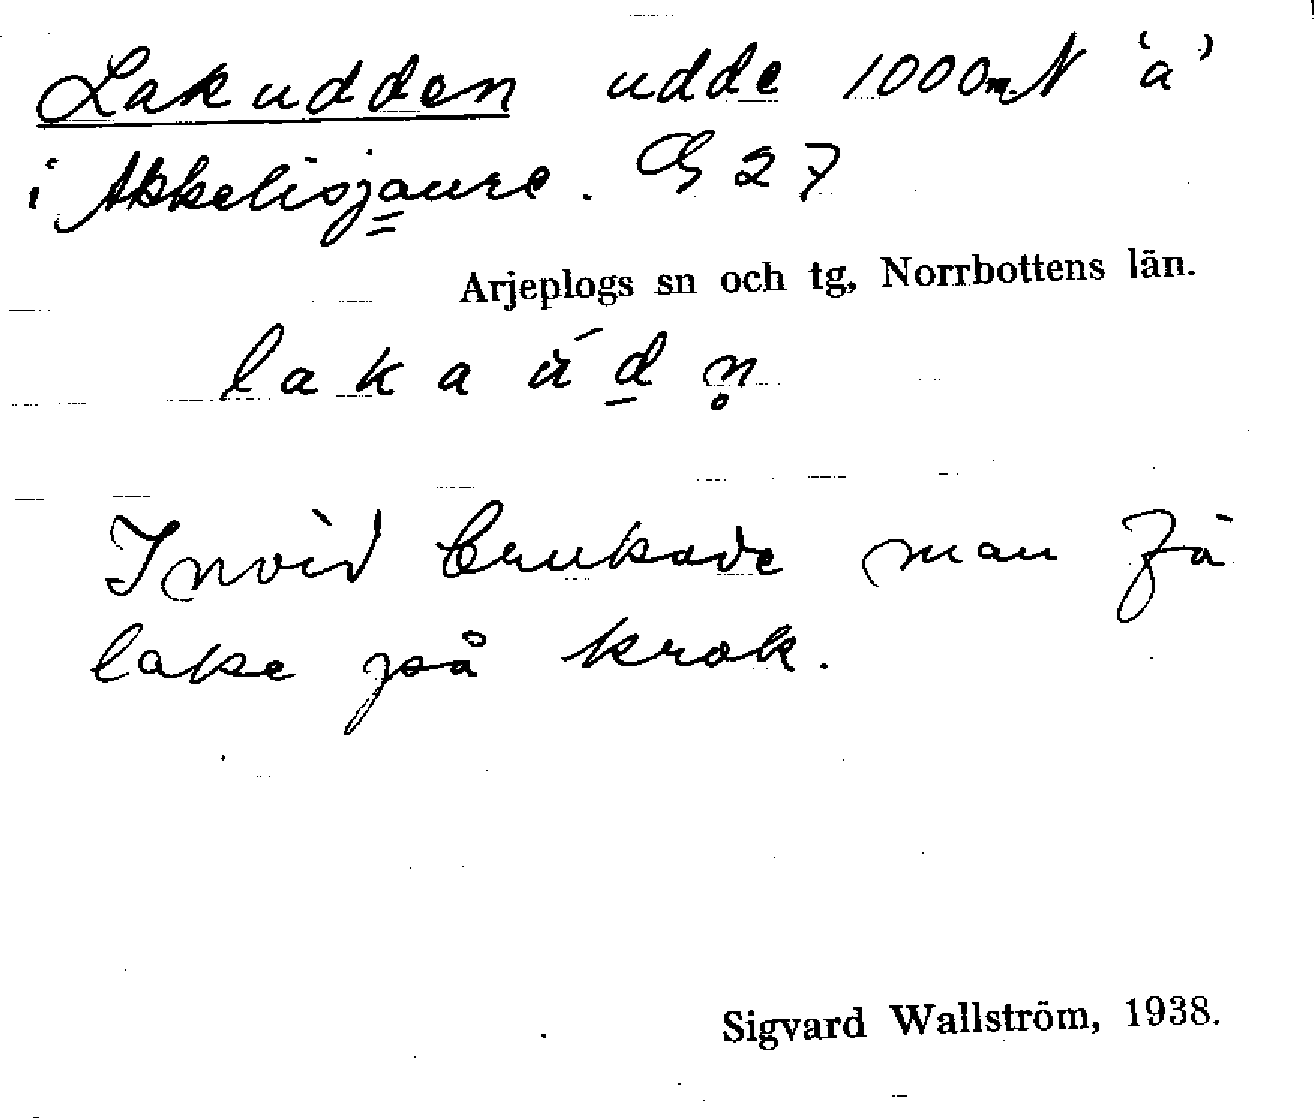 Lakudden udde 1000m N 'a'
i Akkelisjaure. G 27
Arjeplogs sn och tg, Norrbottens län.
laka ú d n̥
Invid brukade man få
lake på krok.
Sigvard Wallström, 1938.